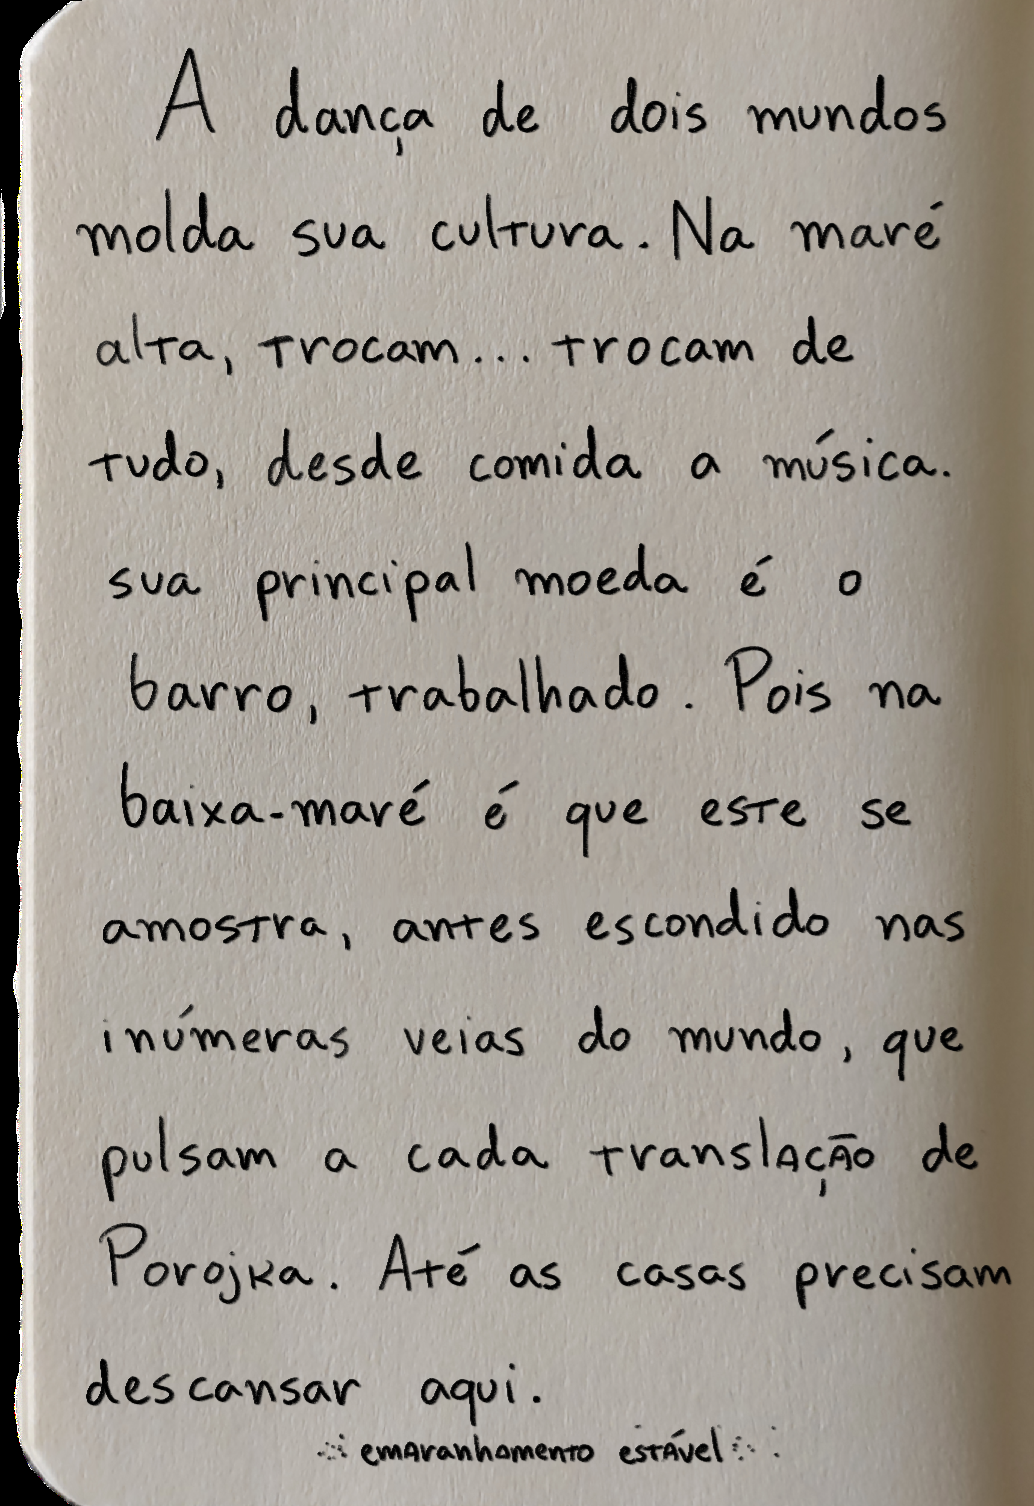 A dança de dois mundos
molda sua cultura. Na maré
alta, trocam... trocam de
tudo, desde comida a música.
sua principal moeda é o
barro, trabalhado. Pois na
baixa-maré é que este se
amostra, antes escondido nas
inúmeras veias do mundo, que
pulsam a cada translação de
Porojka. Até as casas precisam
descansar aqui.
emaranhamento estável